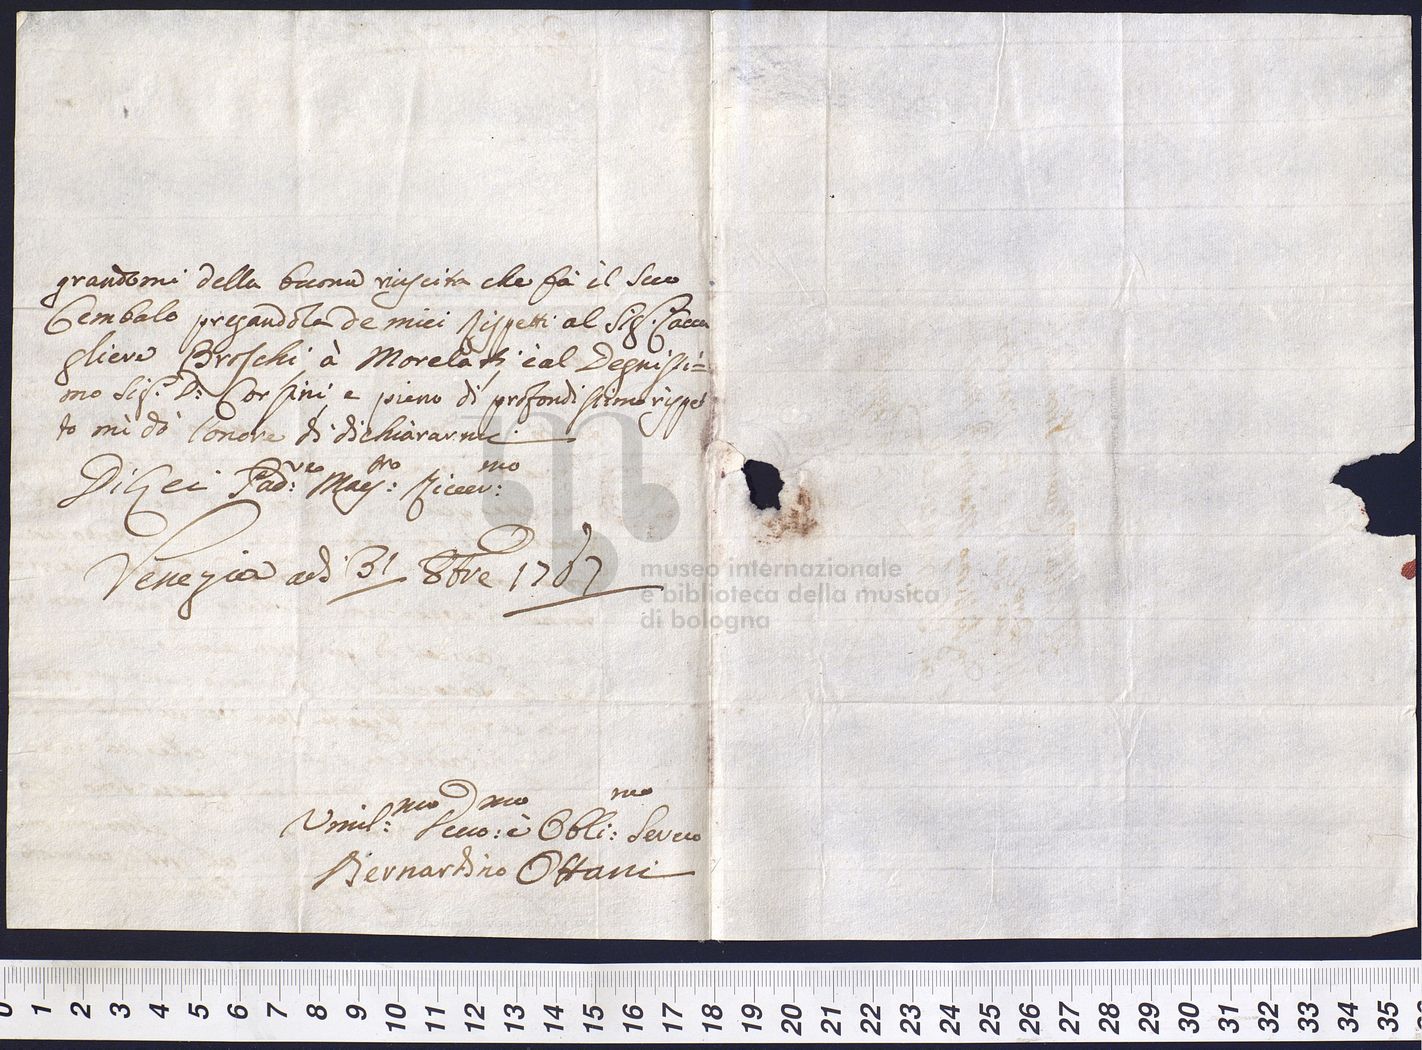 grandomi della buona riuscita che fà il suo
Cembalo pregandola de miei rispetti al Sig.r Cava
gliere Broschi à Morelati è al Degnissi=
mo Sig.r D: Corsini e pieno di profondissimo rispet
to mi dò l'onore di dichiararmi
Di Lei Pad:re Mag:ro River:mo
Venezia adi 31 8bre 1767
Umil:mo Devo:mo è Obli:mo Servo
Bernardino Ottani
museo internazionale
e biblioteca della musica
di bologna
0 1 2 3 4 5 6 7 8 9 10 11 12 13 14 15 16 17 18 19 20 21 22 23 24 25 26 27 28 29 30 31 32 33 34 35